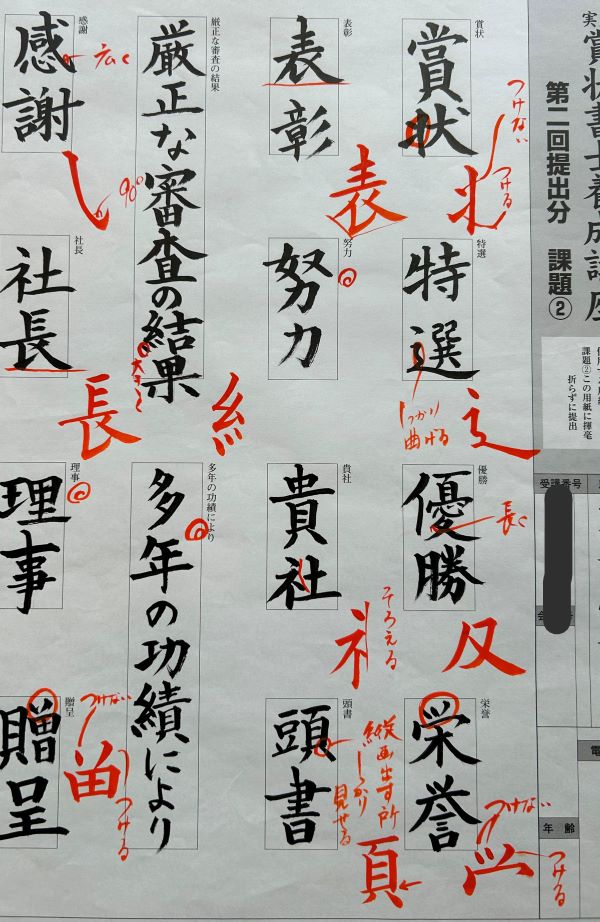 賞状書士養成講座
第二回提出分 課題②
課題②この用紙に揮毫
折らずに提出
受講番号
年齢
賞状
賞状
つけない
つける
特選
特選
しっかり
曲げる
優勝
優勝
長く
栄誉
栄誉
つけない
つける
表彰
表彰
表
努力
努力
貴社
貴社
そろえる
頭書
頭書
縦画出す所
しっかり
見せる
頁
厳正な審査の結果
厳正な審査の結果
大きく
糸
多年の功績により
多年の功績により
感謝
感謝
広く
90°
社長
社長
長
理事
理事
贈呈
贈呈
つけない
つける